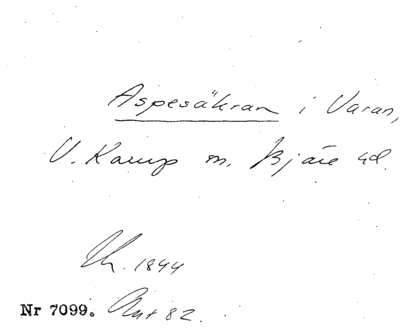 Aspesåkran i Varan,
V. Karup sn. Bjäre hd.
Lh. 1844
Nr 7099. Akt 82.